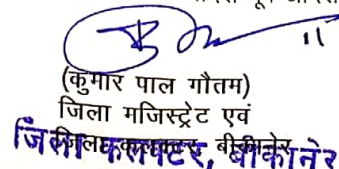 (कुमार पाल गौतम)
जिला मजिस्ट्रेट एवं
जिला कलक्टर, बीकानेर
जिला कलक्टर, बीकानेर